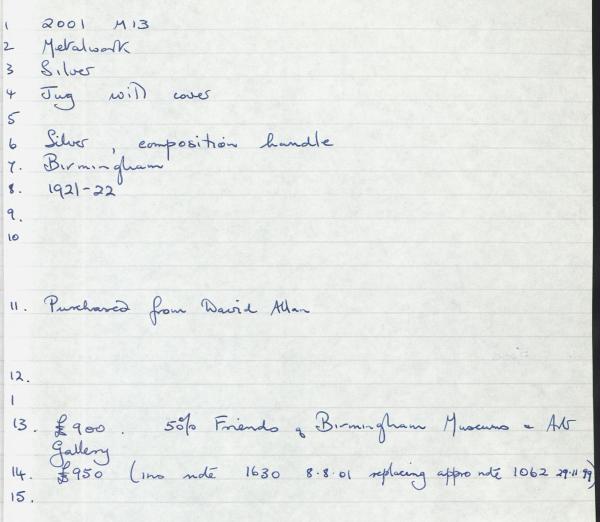 1 2001 M13
2 Metalwork
3 Silver
4 Jug with cover
5
6 Silver, composition handle
7. Birmingham
8. 1921-22
9.
10
11. Purchased from David Allan
12.
1
13. £900. 50% Friends of Birmingham Museums & Art
Gallery
14. £950 (ins note 1630 8.8.01 replacing appro note 1062 29.11.99)
15.